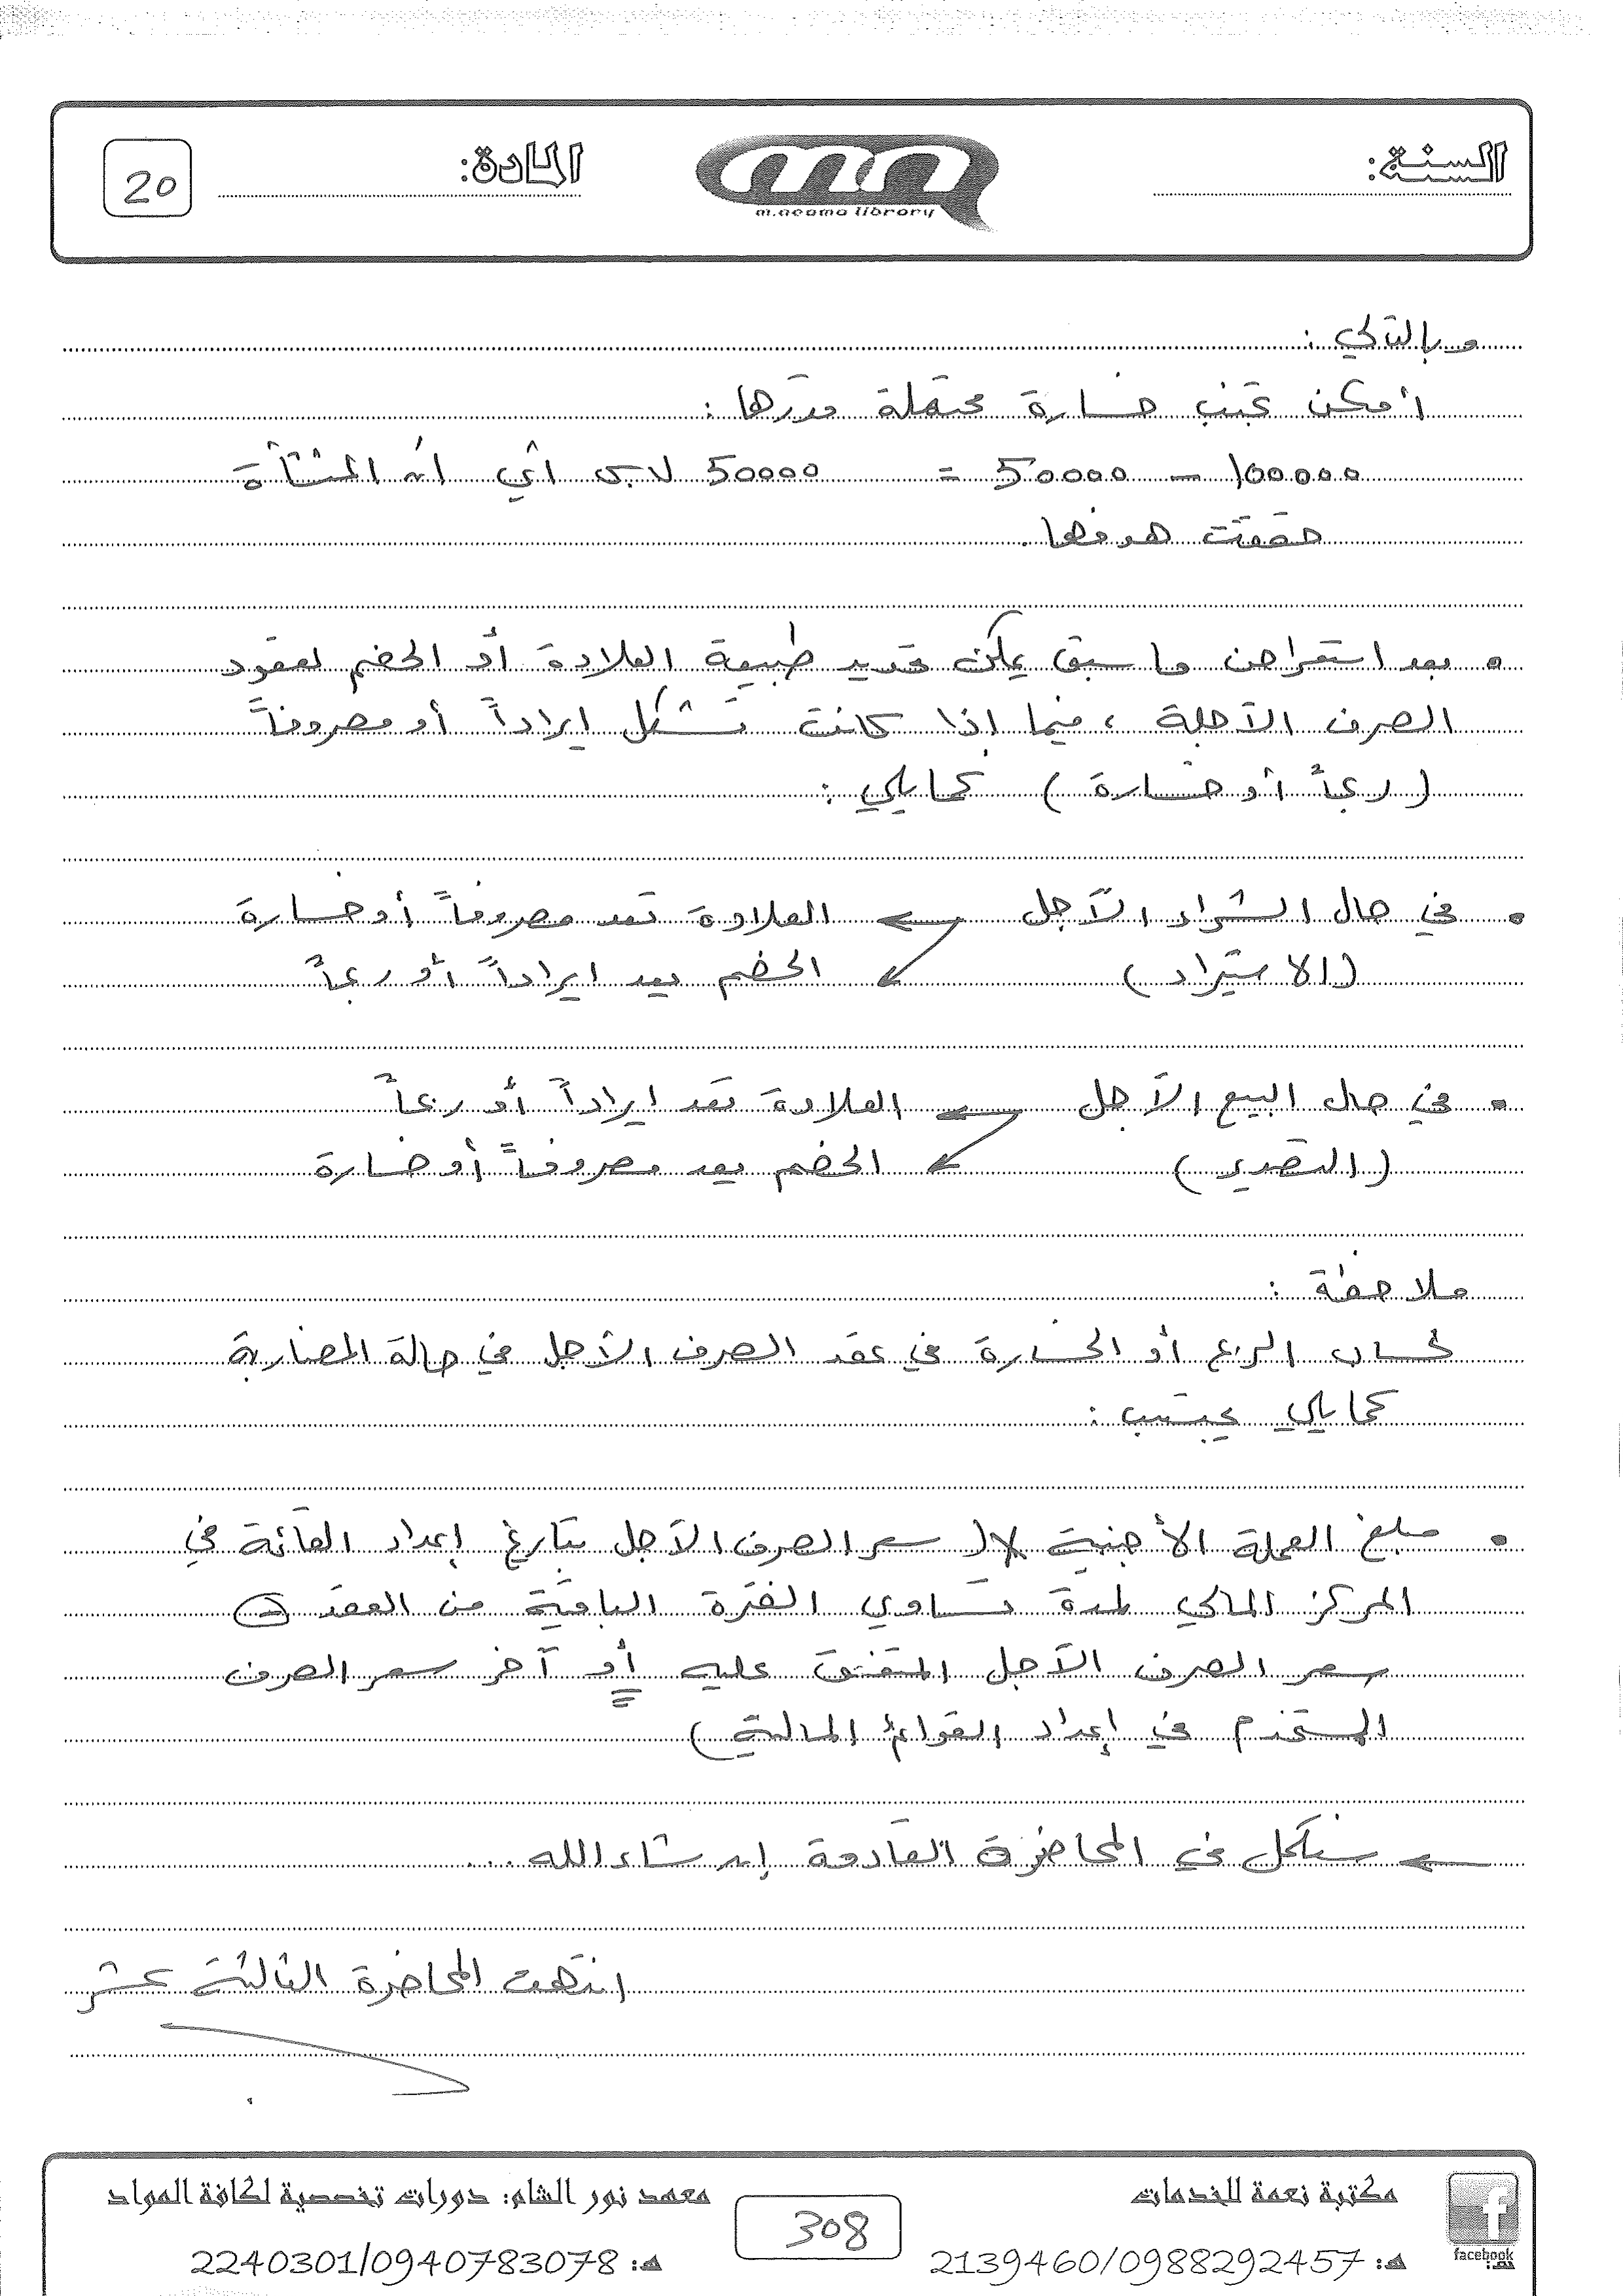 السنة:
m.neama library
المادة:
20
وبالتالي :
أمكن تجنب خسارة محتملة قدرها :
100000 - 50000 = 50000 ل.س أي أن المنشأة
حققت هدفها .
• بعد استعراض ما سبق يمكن تحديد طبيعة العلاوة أو الخصم لعقود
الصرف الآجلة ، فيما اذا كانت تشكل ايراداً أو مصروفاً
( ربحاً أو خسارة ) كمايلي :
• في حال الشراء الآجل ← العلاوة تعد مصروفاً أو خسارة
( الاستيراد ) ← الخصم يعد ايراداً أو ربحاً
• في حال البيع الآجل ← العلاوة تعد ايراداً أو ربحاً
( التصدير ) ← الخصم يعد مصروفاً أو خسارة
ملاحظة :
لحساب الربح أو الخسارة في عقد الصرف الآجل في حالة المضاربة
كمايلي يحتسب :
• مبلغ العملة الأجنبية × ( سعر الصرف الآجل بتاريخ إعداد القائمة في
المركز المالي لمدة تساوي الفترة الباقية من العقد -
سعر الصرف الآجل المتفق عليه أو آخر سعر الصرف
المستخدم في إعداد القوائم المالية )
← سنكمل في المحاضرة القادمة إن شاء الله ...
انتهت المحاضرة الثالثة عشر
مكتبة نعمة للخدمات
معهد نور الشام: دورات تخصصية لكافة المواد
facebook
308
هـ: 2139460/0988292457
هـ: 2240301/0940783078